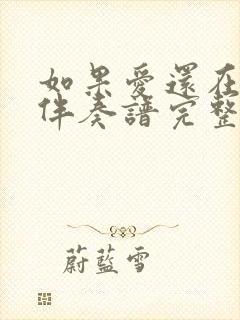 如果愛還在
伴奏譜完整
蔚藍雪